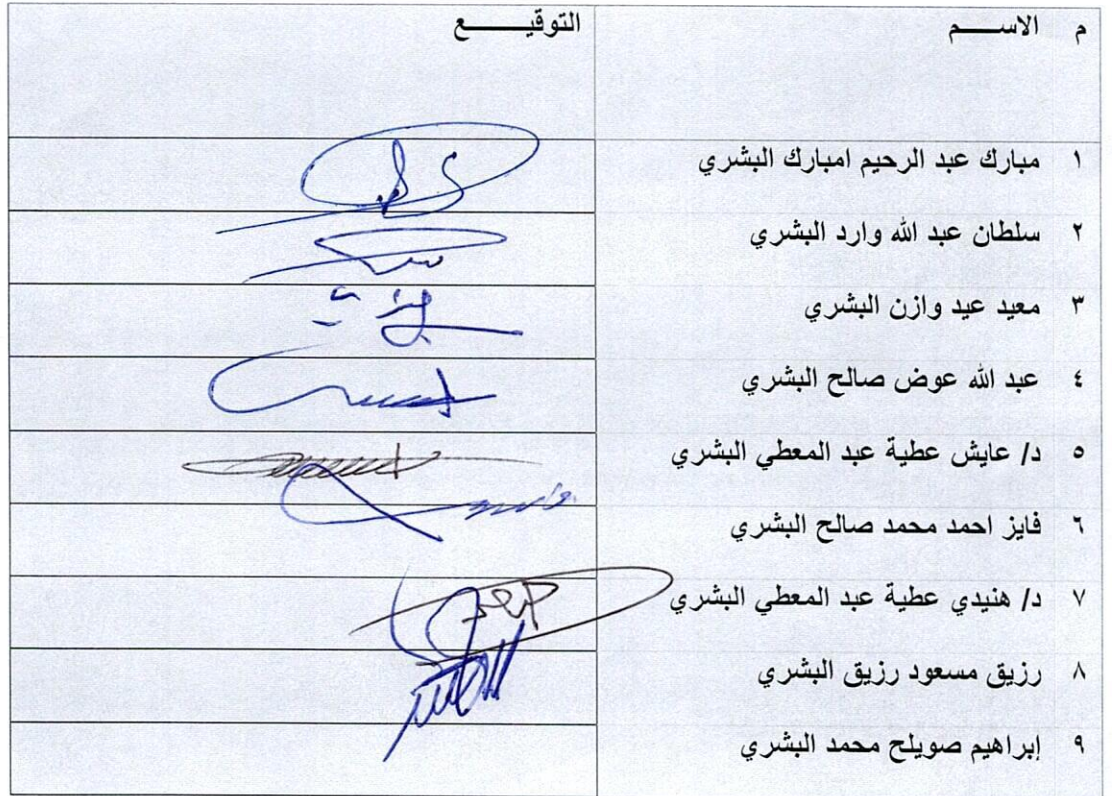 م الاســـم التوقيـــــع
١ مبارك عبد الرحيم امبارك البشري
٢ سلطان عبد الله وارد البشري
٣ معيد عيد وازن البشري
٤ عبد الله عوض صالح البشري
٥ د/ عايش عطية عبد المعطي البشري
٦ فايز احمد محمد صالح البشري
٧ د/ هنيدي عطية عبد المعطي البشري
٨ رزيق مسعود رزيق البشري
٩ إبراهيم صويلح محمد البشري